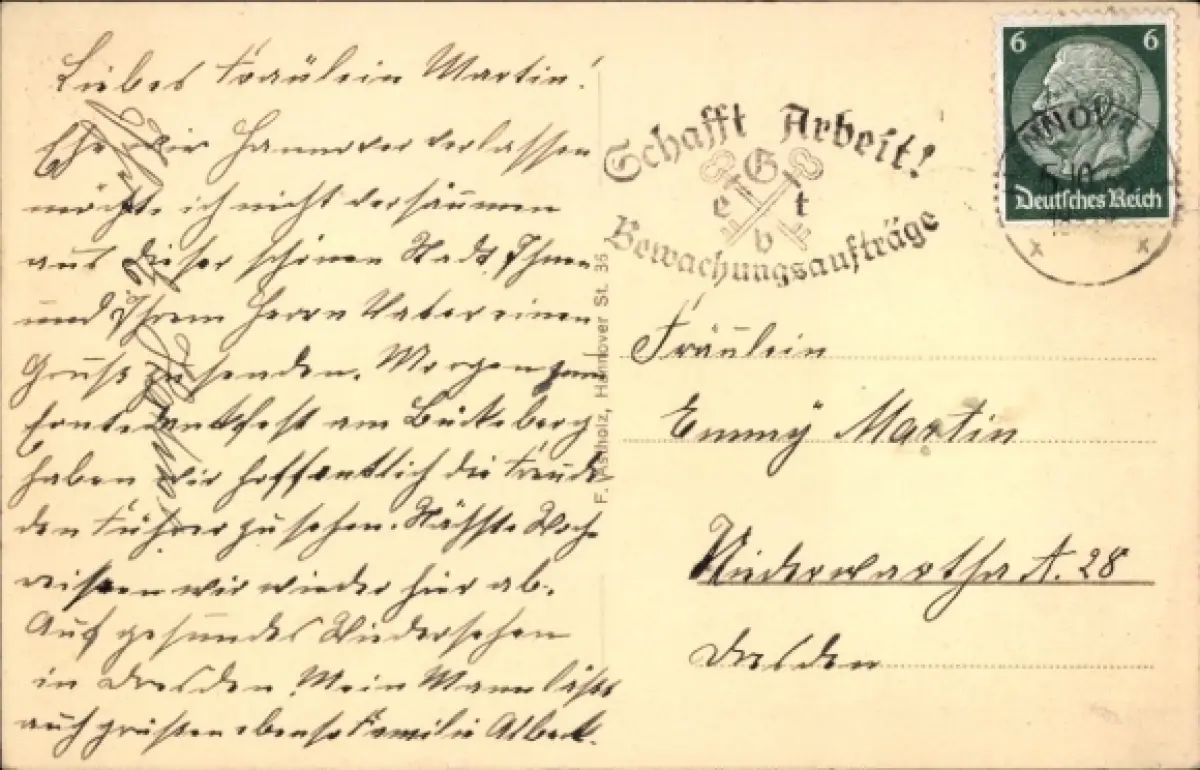 Liebes Fräulein Martin!
Ehe wir Hannover verlassen
möchte ich nicht versäumen
aus dieser schönen Stadt Ihnen
und Ihrem Herrn Vater einen
Gruß zu senden. Morgen zum
Erntedankfest am Bückeberg
haben wir hoffentlich die Freude
den Führer zu sehen. Nächste Woche
reisen wir wieder hier ab.
Auf gesundes Wiedersehen
in Dresden. Mein Mann läßt
auch grüßen ebenso Familie
F. Astholz, Hannover St. 36
Schafft Arbeit!
G
e t
b
Bewachungsaufträge
6 6
Deutsches Reich
Fräulein
Emmy Martin
Niederwartha A. 28
Dresden